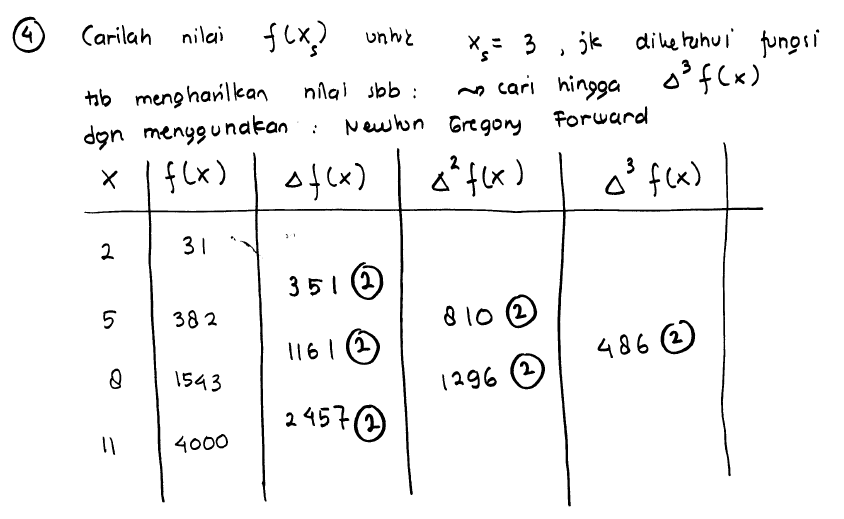 ④ Carilah nilai f(x_s) untuk x_s = 3 , jk diketahui fungsi
tsb menghasilkan nilai sbb : ⇝ cari hingga Δ³ f(x)
dgn menggunakan : Newton Gregory Forward
x | f(x) | Δf(x) | Δ² f(x) | Δ³ f(x)
2 31
351 ②
5 382 810 ②
1161 ② 486 ②
8 1543 1296 ②
2457 ②
11 4000